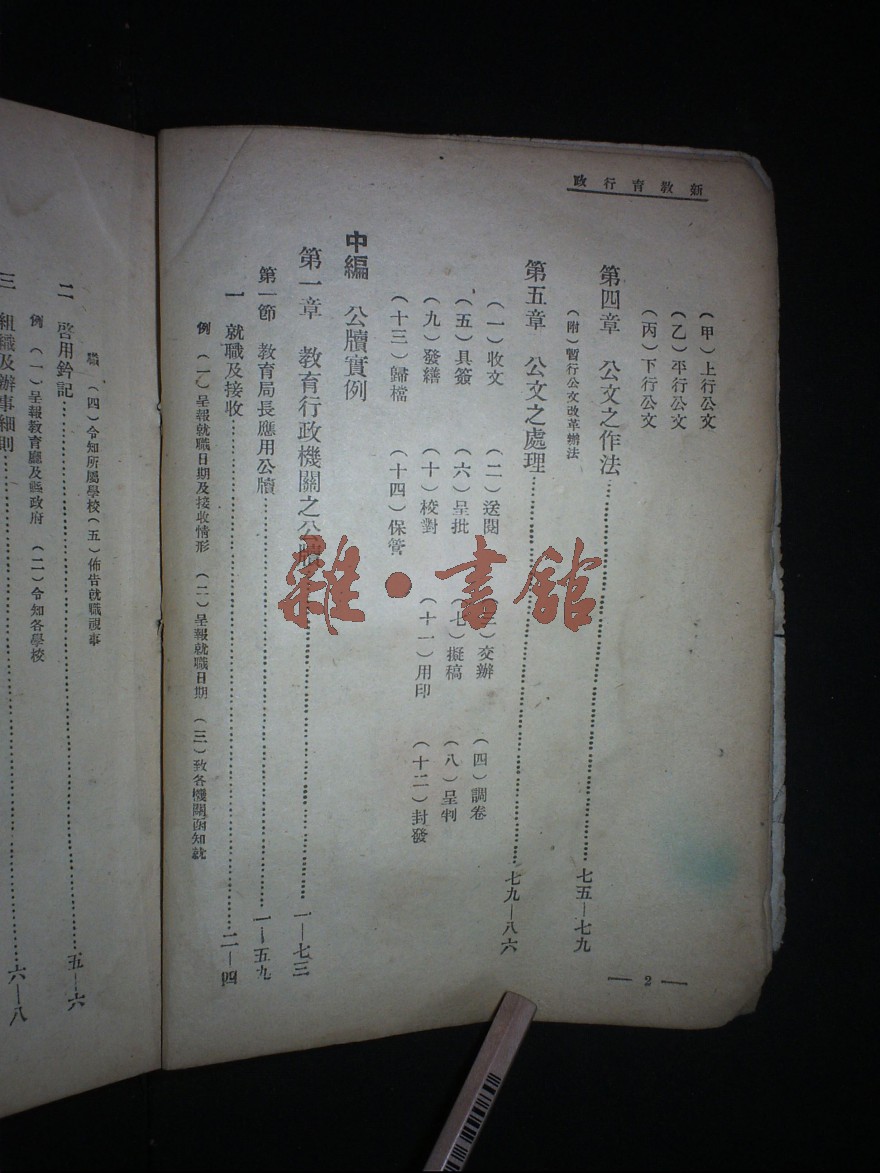 新教育行政
（甲）上行公文
（乙）平行公文
（丙）下行公文
第四章　公文之作法……七五—七九
（附）暫行公文改革辦法
第五章　公文之處理……七九—八六
（一）收文　（二）送閱　（三）交辦　（四）調卷
（五）具簽　（六）呈批　（七）擬稿　（八）呈判
（九）發繕　（十）校對　（十一）用印　（十二）封發
（十三）歸檔　（十四）保管
中編　公牘實例
第一章　教育行政機關之公牘……一—七三
第一節　教育局長應用公牘……一—五九
一　就職及接收……二—四
例　（一）呈報就職日期及接收情形　（二）呈報就職日期　（三）致各機關函知就
職　（四）令知所屬學校（五）佈告就職視事
二　啓用鈐記……五—六
例　（一）呈報教育廳及縣政府　（二）令知各學校
三　組織及辦事細則……六—八
— 2 —
雜・書館